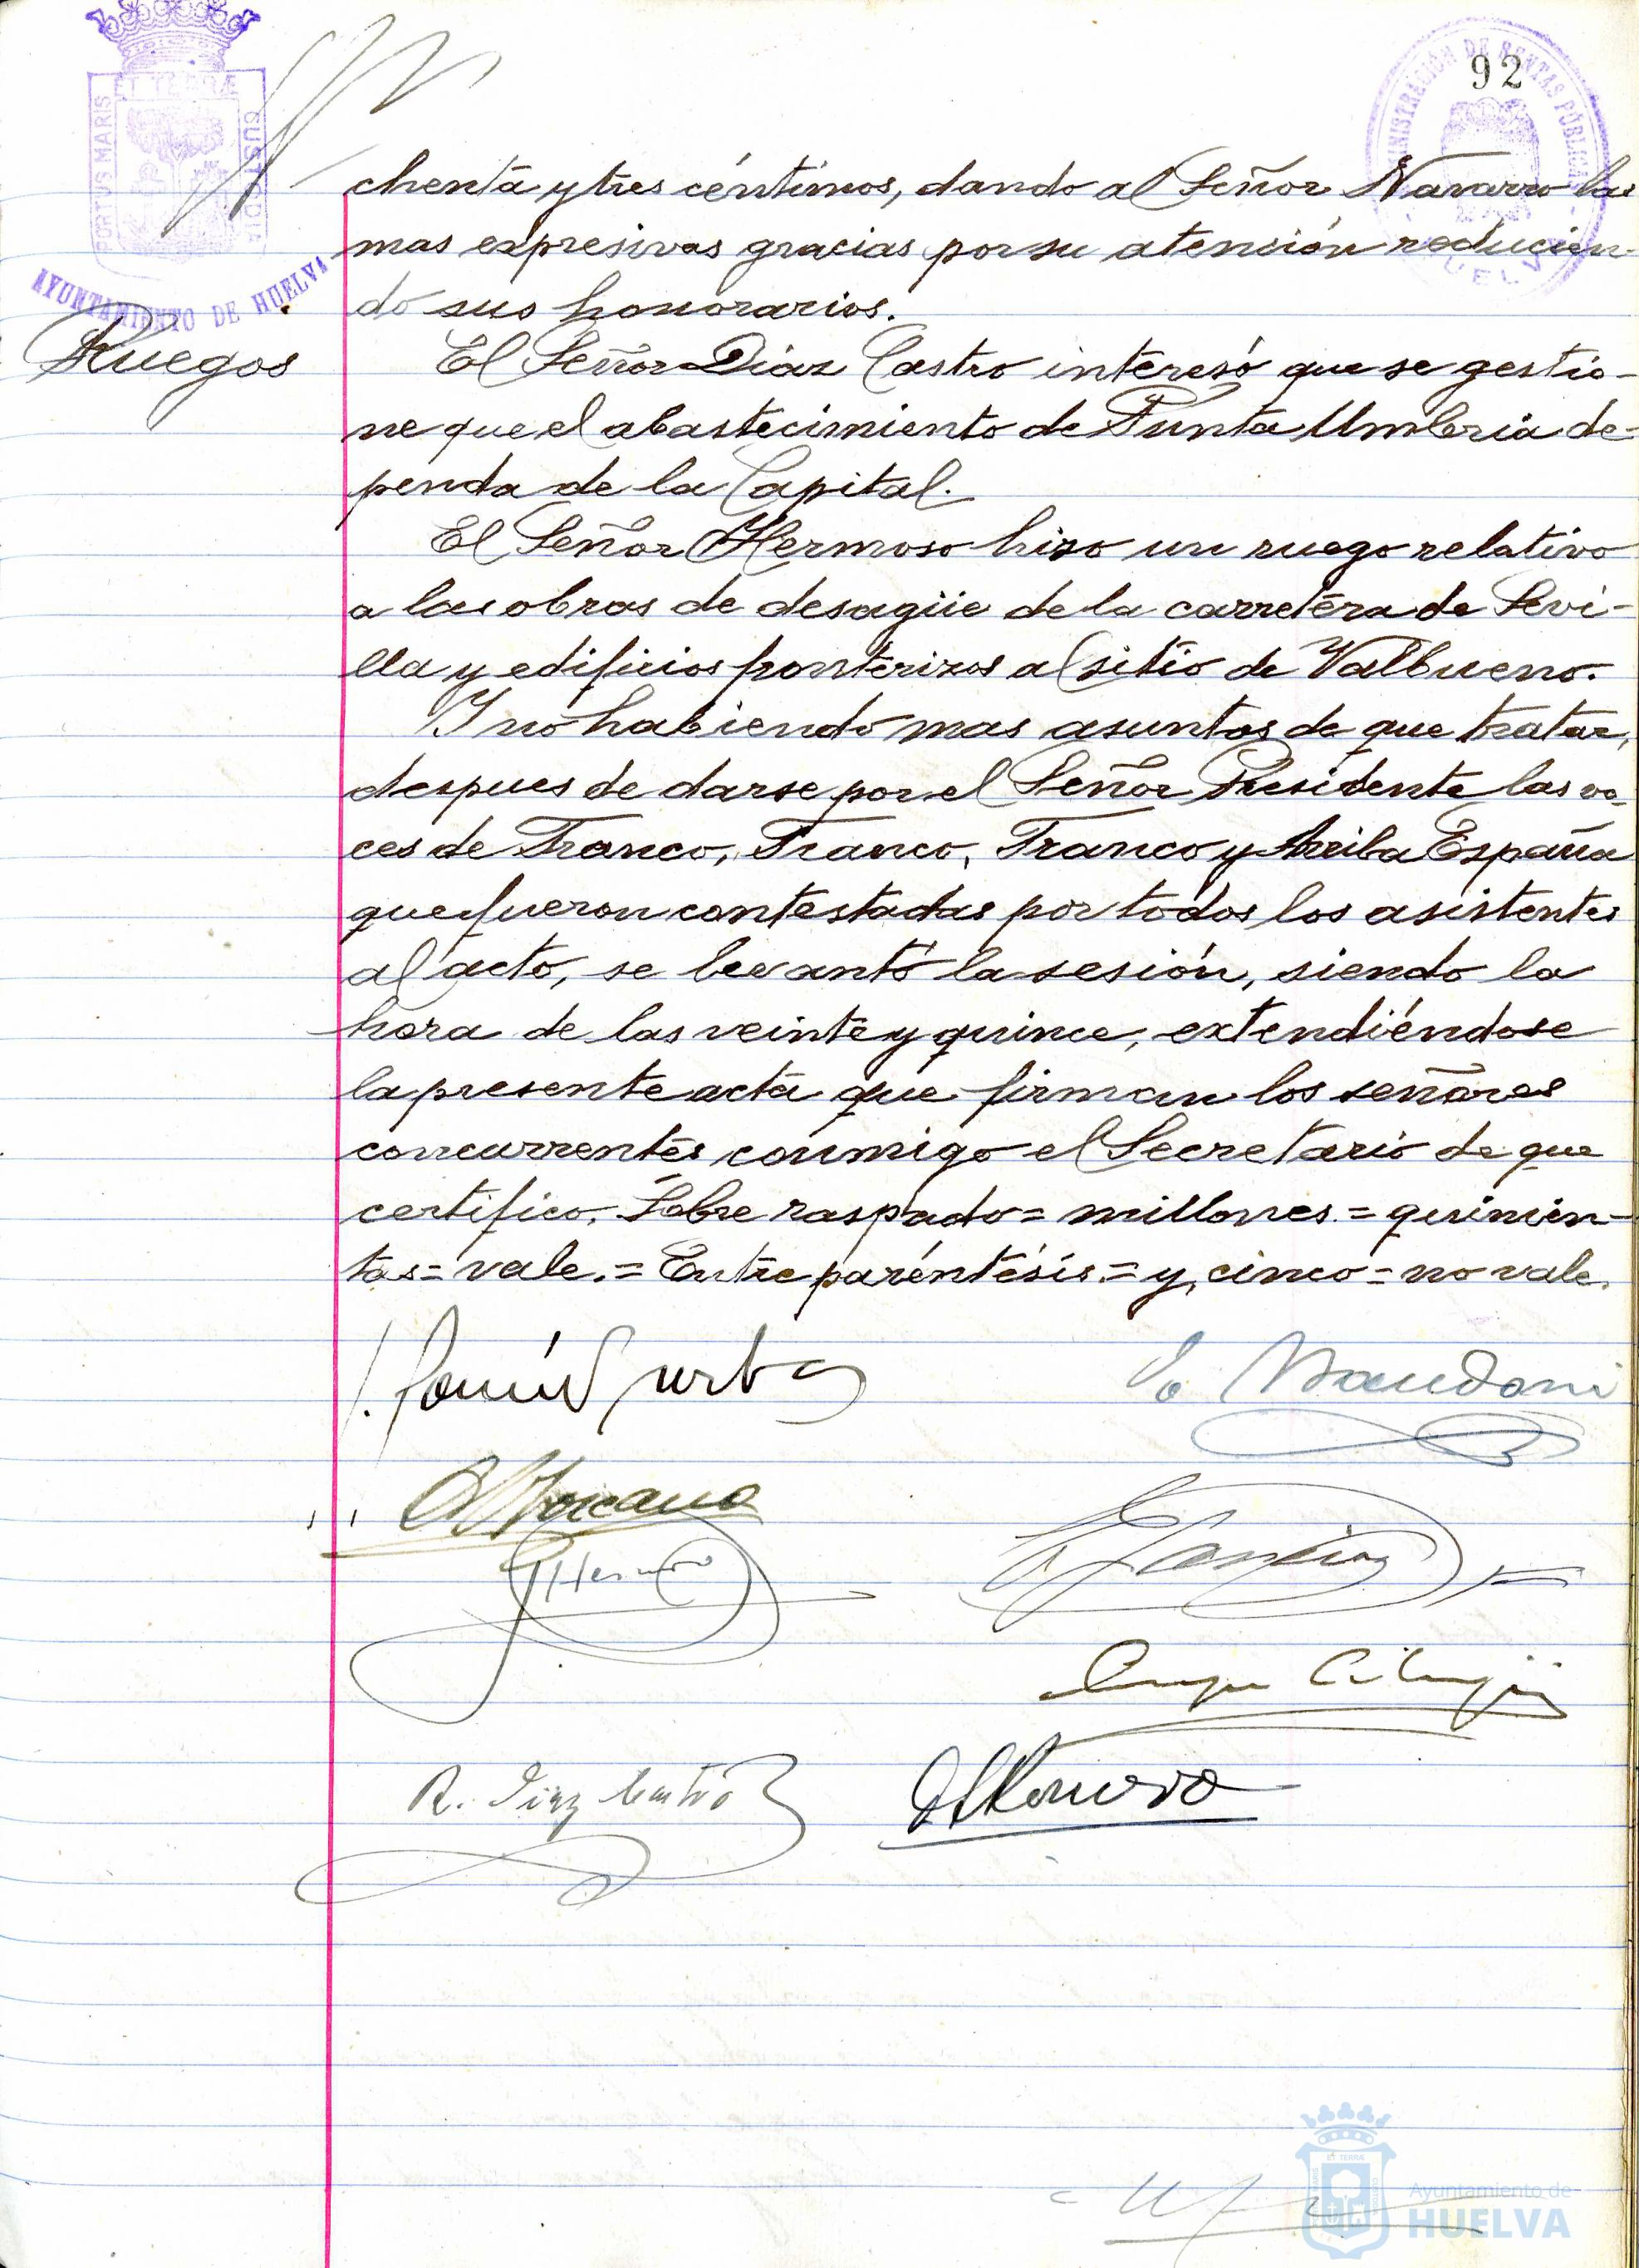 92
PORTUS MARIS
ET TERRÆ
CUSTODIA
AYUNTAMIENTO DE HUELVA
ADMINISTRACIÓN DE RENTAS PÚBLICAS
HUELVA
chenta y tres céntimos, dando al Señor Navarro las
mas expresivas gracias por su atención reducien-
do sus honorarios.
Ruegos
El Señor Diaz Castro interesó que se gestio-
ne que el abastecimiento de Punta Umbria de-
penda de la Capital.
El Señor Hermoso hizo un ruego relativo
a las obras de desagüe de la carretera de Sevi-
lla y edificios fronterizos al sitio de Valbueno.
Y no habiendo mas asuntos de que tratar,
despues de darse por el Señor Presidente las vo-
ces de Franco, Franco, Franco y Arriba España
que fueron contestadas por todos los asistentes
al acto, se levantó la sesión, siendo la
hora de las veinte y quince, extendiéndose
la presente acta que firman los señores
concurrentes conmigo el Secretario de que
certifico. Sobre raspado = millones = quinien-
tas = vale. = Entre paréntesis = y, cinco = no vale.
R. Diaz Castro
Ayuntamiento de
HUELVA